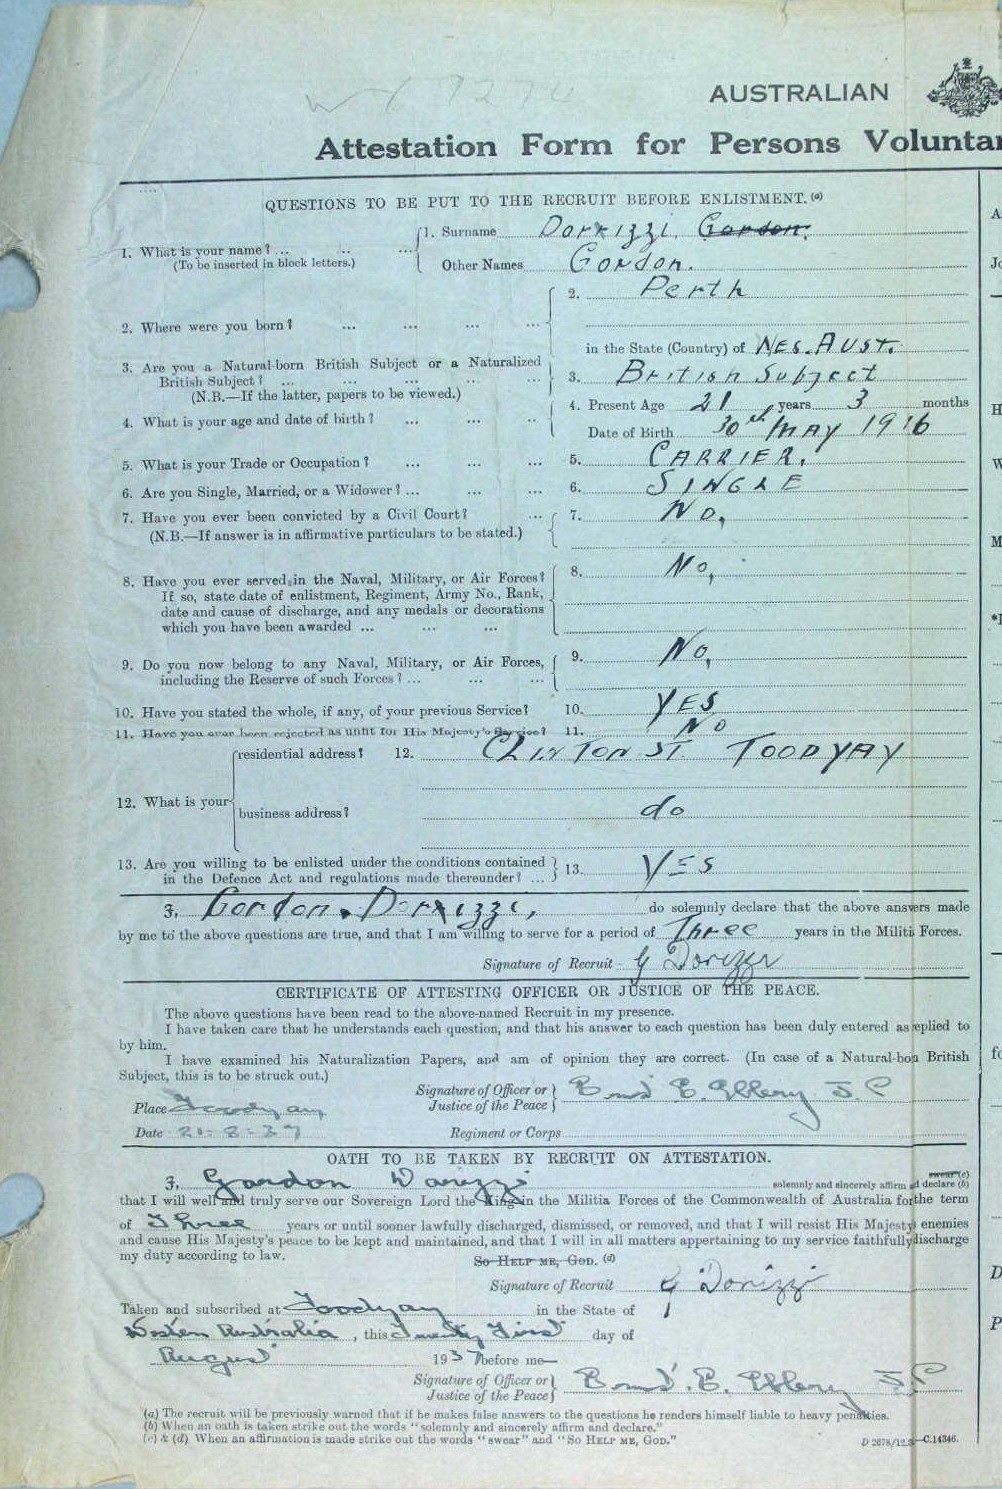 AUSTRALIAN
Attestation Form for Persons Voluntar
QUESTIONS TO BE PUT TO THE RECRUIT BEFORE ENLISTMENT. (a)
1. What is your name? ... ... ... 1. Surname Dorrizzi. Gordon.
(To be inserted in block letters.) Other Names Gordon.
2. Where were you born? ... ... ... ... 2. Perth
in the State (Country) of Wes. Aust.
3. Are you a Natural-born British Subject or a Naturalized
British Subject? ... ... ... ... ... 3. British Subject
(N.B.—If the latter, papers to be viewed.)
4. What is your age and date of birth? ... ... .. 4. Present Age 21 years 3 months
Date of Birth 30th MAY 1916
5. What is your Trade or Occupation? ... ... ... 5. CARRIER.
6. Are you Single, Married, or a Widower? ... ... ... 6. SINGLE
7. Have you ever been convicted by a Civil Court? ... 7. No,
(N.B.—If answer is in affirmative particulars to be stated.)
8. Have you ever served in the Naval, Military, or Air Forces? 8. No,
If so, state date of enlistment, Regiment, Army No., Rank,
date and cause of discharge, and any medals or decorations
which you have been awarded ... ... ...
9. Do you now belong to any Naval, Military, or Air Forces, 9. No,
including the Reserve of such Forces? ... ... ...
10. Have you stated the whole, if any, of your previous Service? 10. YES
11. Have you ever been rejected as unfit for His Majesty's Service? 11. NO
12. What is your residential address? 12. CLINTON ST TOODYAY
business address? do
13. Are you willing to be enlisted under the conditions contained
in the Defence Act and regulations made thereunder? ... 13. YES
I, Gordon. Dorrizzi, do solemnly declare that the above answers made
by me to the above questions are true, and that I am willing to serve for a period of Three years in the Militi Forces.
Signature of Recruit G Dorizzi
CERTIFICATE OF ATTESTING OFFICER OR JUSTICE OF THE PEACE.
The above questions have been read to the above-named Recruit in my presence.
I have taken care that he understands each question, and that his answer to each question has been duly entered as replied to
by him.
I have examined his Naturalization Papers, and am of opinion they are correct. (In case of a Natural-bon British
Subject, this is to be struck out.)
Signature of Officer or
Justice of the Peace J.P
Place Toodyay
Date 20-8-37 Regiment or Corps
OATH TO BE TAKEN BY RECRUIT ON ATTESTATION.
I, Gordon Dorizzi swear (c)
solemnly and sincerely affirm d declare (b)
that I will well and truly serve our Sovereign Lord the King in the Militia Forces of the Commonwealth of Australia for the term
of Three years or until sooner lawfully discharged, dismissed, or removed, and that I will resist His Majesty enemies
and cause His Majesty's peace to be kept and maintained, and that I will in all matters appertaining to my service faithfully discharge
my duty according to law.
So HELP ME, GOD. (d)
Signature of Recruit G Dorizzi
Taken and subscribed at Toodyay in the State of
Western Australia, this Twenty First day of
August 1937 before me—
Signature of Officer or
Justice of the Peace J.P
(a) The recruit will be previously warned that if he makes false answers to the questions he renders himself liable to heavy penalties.
(b) When an oath is taken strike out the words "solemnly and sincerely affirm and declare."
(c) & (d) When an affirmation is made strike out the words "swear" and "So HELP ME, GOD."
D 2678/12.3—C.14346.